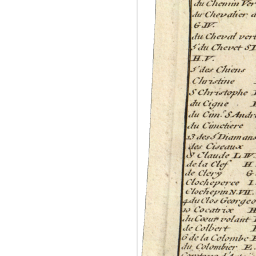 du Chemin Ver
du Chevalier d
G.W.
du Cheval vert
5 du Chevet S.
H.V.
5 des Chiens
Christine
S. Christophe
du Cigne
du Cim. S. Andr
du Cimetiere
13 des S Diamans
des Ciseaux
St Claude L.W.
de la Clef H
de Clery G
Clocheperce I.
Clochepin N.VII.
4 du Clos George
10 Cocatrix H
du Cœur volant
de Colbert
6 de la Colombe
du Colombier E.